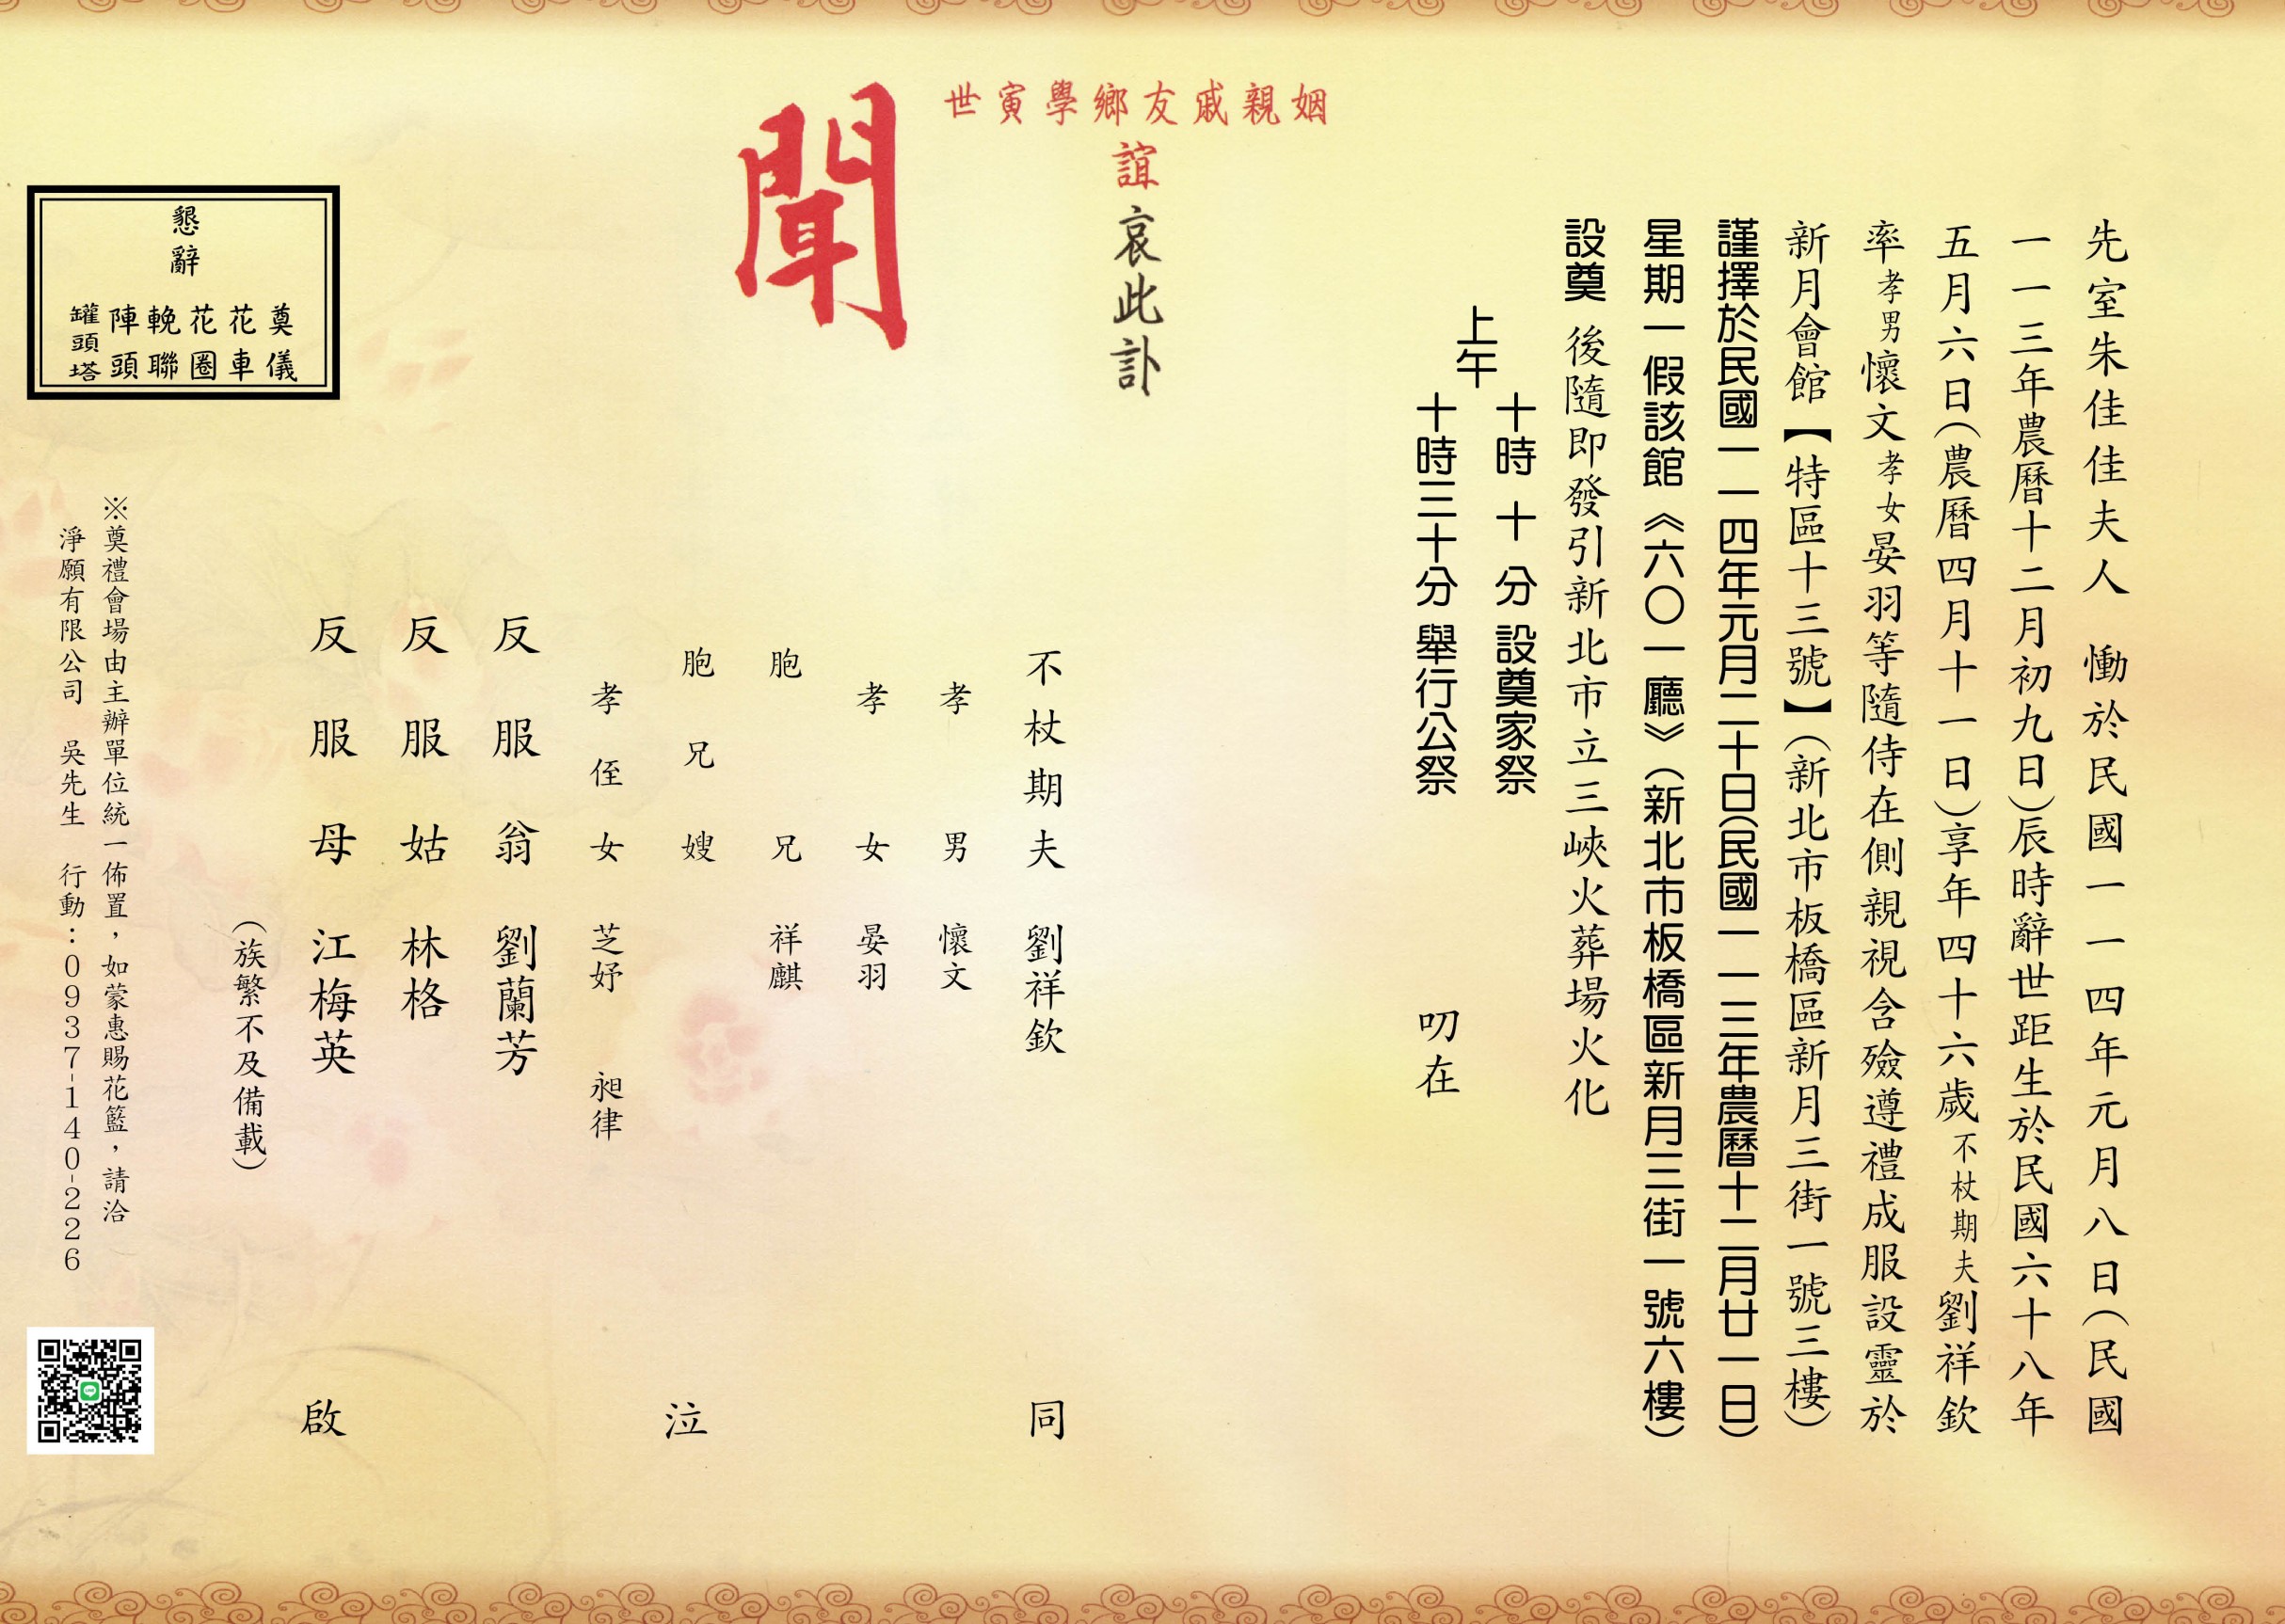 先室朱佳佳夫人　慟於民國一一四年元月八日(民國
一一三年農曆十二月初九日)辰時辭世距生於民國六十八年
五月六日(農曆四月十一日)享年四十六歲不杖期夫劉祥欽
率孝男懷文孝女晏羽等隨侍在側親視含殮遵禮成服設靈於
新月會館【特區十三號】(新北市板橋區新月三街一號三樓)
謹擇於民國一一四年元月二十日(民國一一三年農曆十二月廿一日)
星期一假該館《六〇一廳》(新北市板橋區新月三街一號六樓)
設奠 後隨即發引新北市立三峽火葬場火化
上午
十時 十 分 設奠家祭
十時三十分 舉行公祭
叨在
姻親戚友鄉學寅世
誼哀此訃
聞
不杖期夫 劉祥欽
孝男 懷文
孝女 晏羽
胞兄 祥麒
胞兄嫂
孝侄女 芝妤 昶律
反服翁 劉蘭芳
反服姑 林格
反服母 江梅英
(族繁不及備載)
同 泣 啟
懇辭
奠儀
花車
花圈
輓聯
陣頭
罐頭塔
※奠禮會場由主辦單位統一佈置，如蒙惠賜花籃，請洽
淨願有限公司 吳先生 行動：0937-140-226